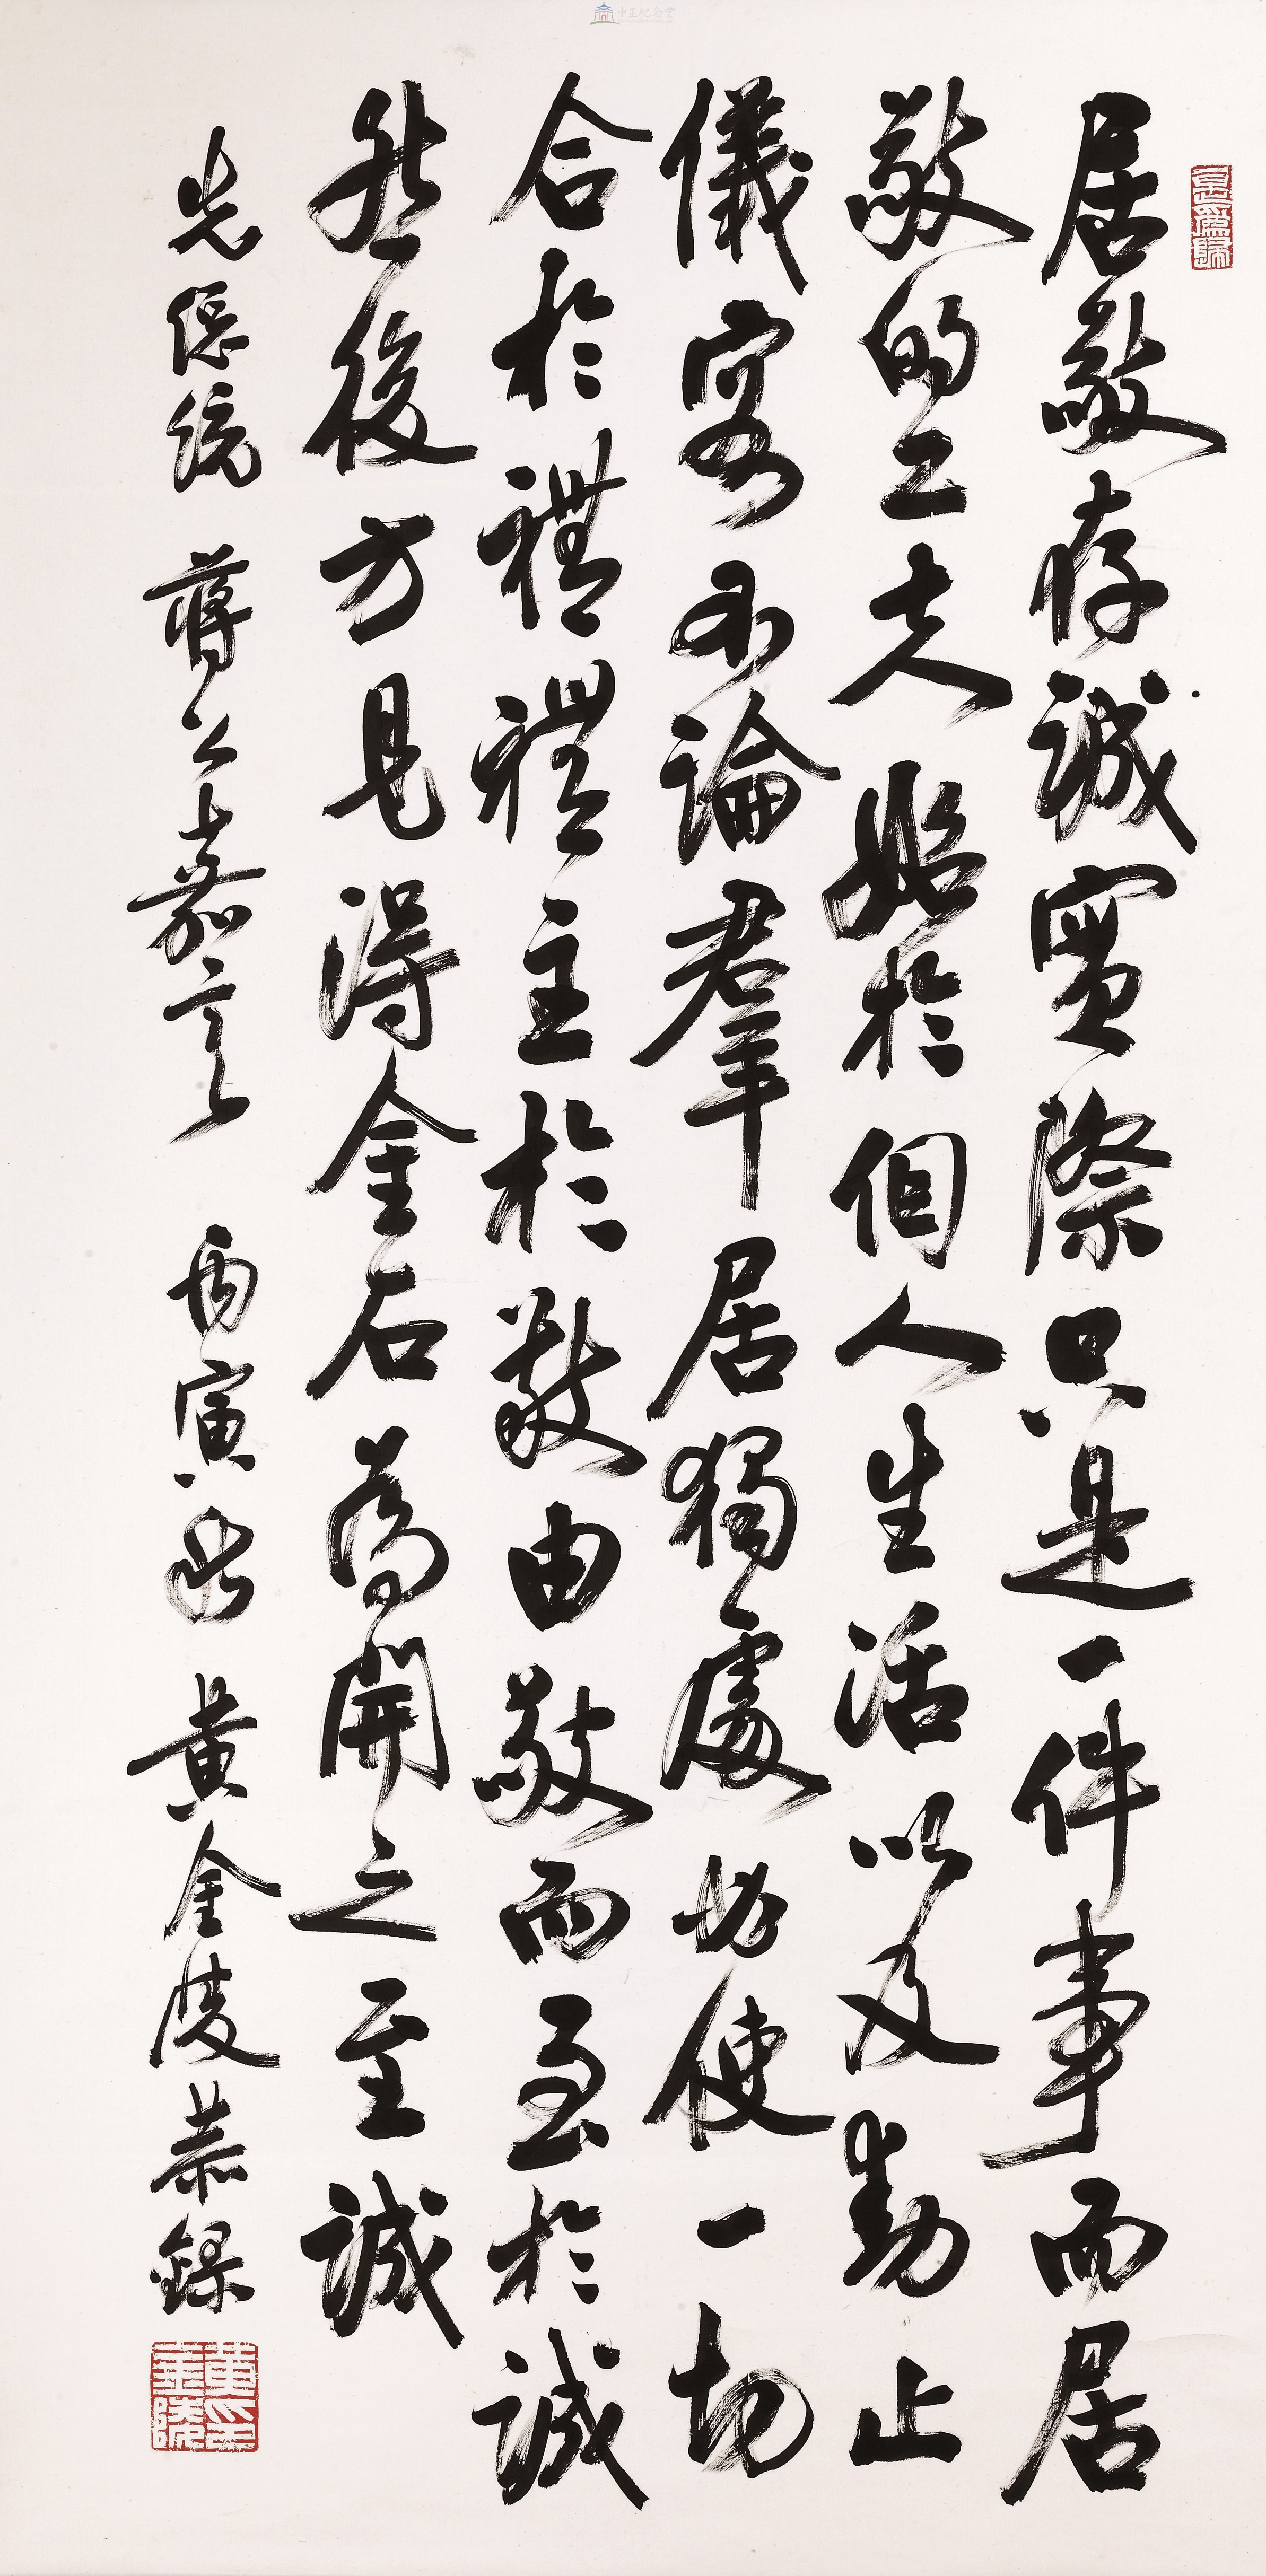 居敬存誠實際只是一件事而居
敬的工夫始於個人生活以及動止
儀容不論羣居獨處務使一切
合於禮禮主於敬敬由敬而至於誠
然後方見得金石為開之至誠
先總統 蔣公嘉言 丙寅 黃金陵恭錄
黃金陵印
中正紀念堂